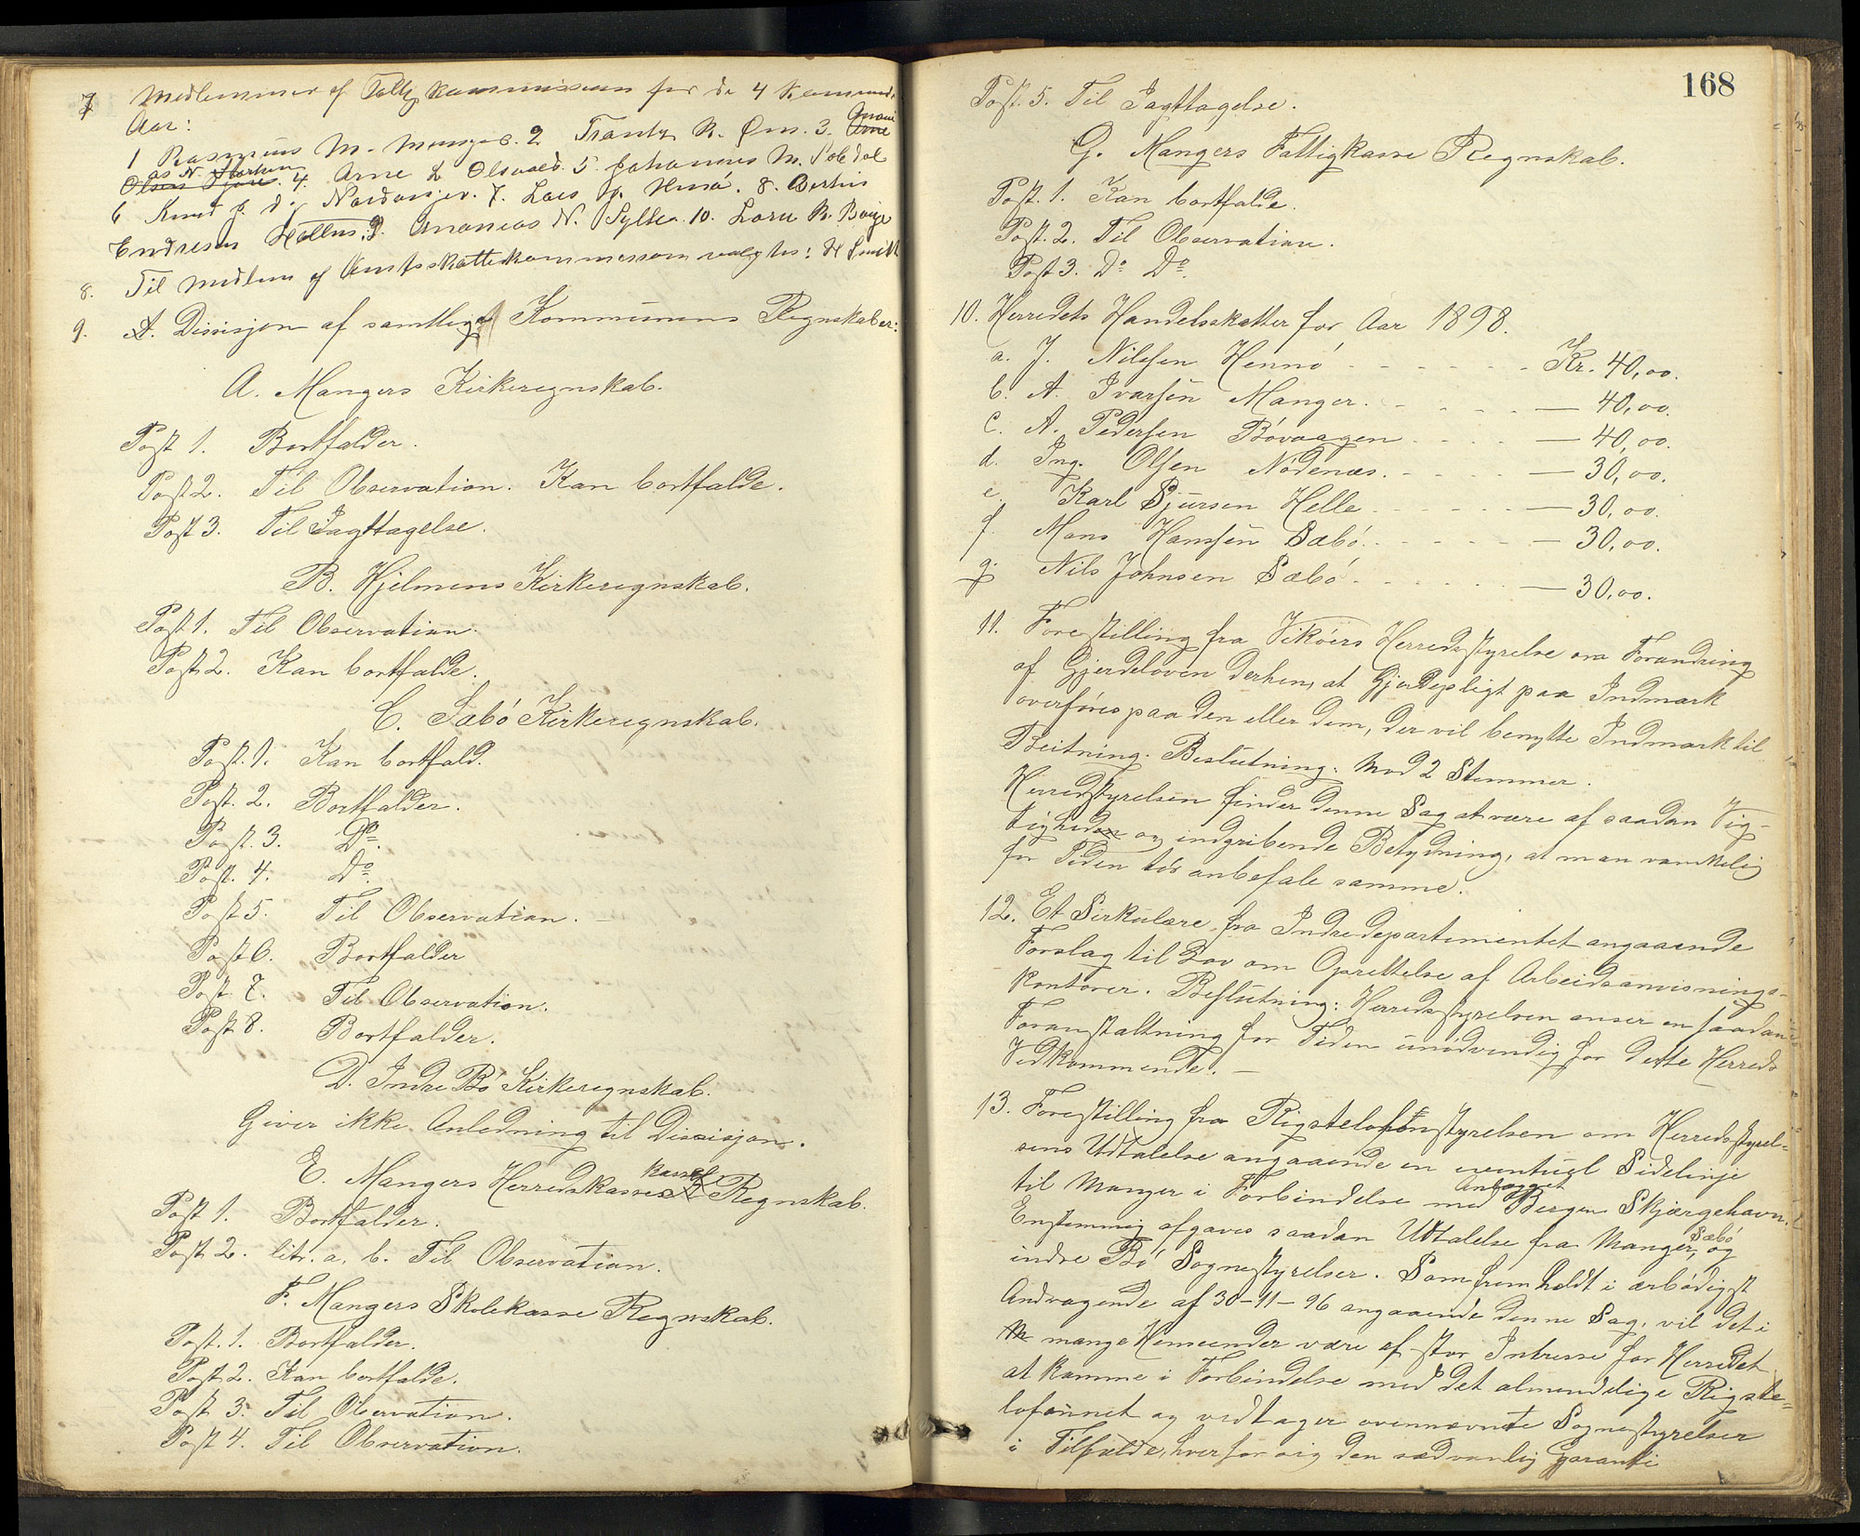 7 Medlemmer af kommissionen for de 4 kommende
Aar:
1 Rasmus M. Manger. 2 Frantz R. Øen. 3. Arne
Olsen . 4. Arne L Olsvold. 5. Johannes M. Toldal
6 Knud J. d. . 7. Lars J. . 8. Berthis
Endresen . 9. Ananias N. Sylte. 10. Lars R. Bøe
8. Til Medlem af Amtsskattekommissionen valgtes: H
9. A. Dissisjon af samtlige Kommunens Regnskaber:
A. Mangers Kirkeregnskab.
Post 1. Bortfalder.
Post 2. Til Observation. Kan bortfalde.
Post 3. Til Iagttagelse.
B. Hjelmens Kirkeregnskab.
Post 1. Til Observation.
Post 2. Kan bortfalde.
C. Sæbø Kirkeregnskab.
Post. 1. Kan bortfald.
Post. 2. Bortfalder.
Post. 3. Do.
Post. 4. Do.
Post 5. Til Observation. –
Post 6. Bortfalder
Post. 7. Til Observation.
Post 8. Bortfalder.
D. Indre Bø Kirkeregnskab.
Giver ikke Anledning til Dissisjon.
E. Mangers Herredskasses Regnskab.
Post 1. Bortfalder.
Post 2. litr. a. b. Til Observation.
F. Mangers Skolekasse Regnskab.
Post. 1. Bortfalder.
Post 2. Kan bortfalde.
Post 3. Til Observation.
Post 4. Til Observation.
168
Post. 5. Til Iagttagelse.
G. Mangers Fattigkasse Regnskab.
Post. 1. Kan bortfalde.
Post. 2. Til Observation.
Post 3. Do Do.
10. Herredets Handelsskatter for Aar 1898.
a. J. Nilssen Hennø - - - - - - Kr. 40,00.
b. A. Ivarsen Manger. - - - - — 40,00.
c. A. Pedersen Bøvaagen - - - - — 40,00.
d. Ing. Olsen Nødenæs. - - - - — 30,00.
e. Karl Sjursen Helle - - - - - — 30,00.
f. Mons Hanssen Sæbø. - - - - - — 30,00.
g. Nils Johnsen Sæbø - - - - - — 30,00.
11. Forestilling fra Vikøers Herredsstyrelse om Forandring
af Gjerdeloven derhen, at Gjerdepligt paa Indmark
overføres paa den eller dem, der vil benytte Indmark til
Beitning. Beslutning: Mod 2 Stemmer.
Herredsstyrelsen finder denne Sag at være af saadan Vig-
tigheden og indgribende Betydning, at man vanskelig
for Tiden tør anbefale samme.
12. Et Sirkulære fra Indredepartementet angaaende
Forslag til Lov om Oprettelse af Arbeidsanvisnings-
kontorer. Beslutning: Herredsstyrelsen anser en saadan
Foranstaltning for Tiden unødvendig for dette Herreds
Vedkommende. –
13. Forestilling fra Rigstelefonstyrelsen om Herredsstyrel-
sens Udtalelse angaaende en eventuel Sidelinje
til Manger i Forbindelse med Anlægget Bergen Skjærgehavn.
Enstemmig afgaves saadan Udtalelse fra Manger, Sæbø og
indre Bø Sognestyrelser. Som fremholdt i ærbødigst
Andragende af 30-11-96 angaaende denne Sag, vil det i
mange Henseender være af stor Intresse for Herredet
at komme i Forbindelse med det almindelige Rigste-
lefonnet og vedtager ovennævnte Sognestyrelser
i Tilfælde, hver for sig den sædvanlig Garanti